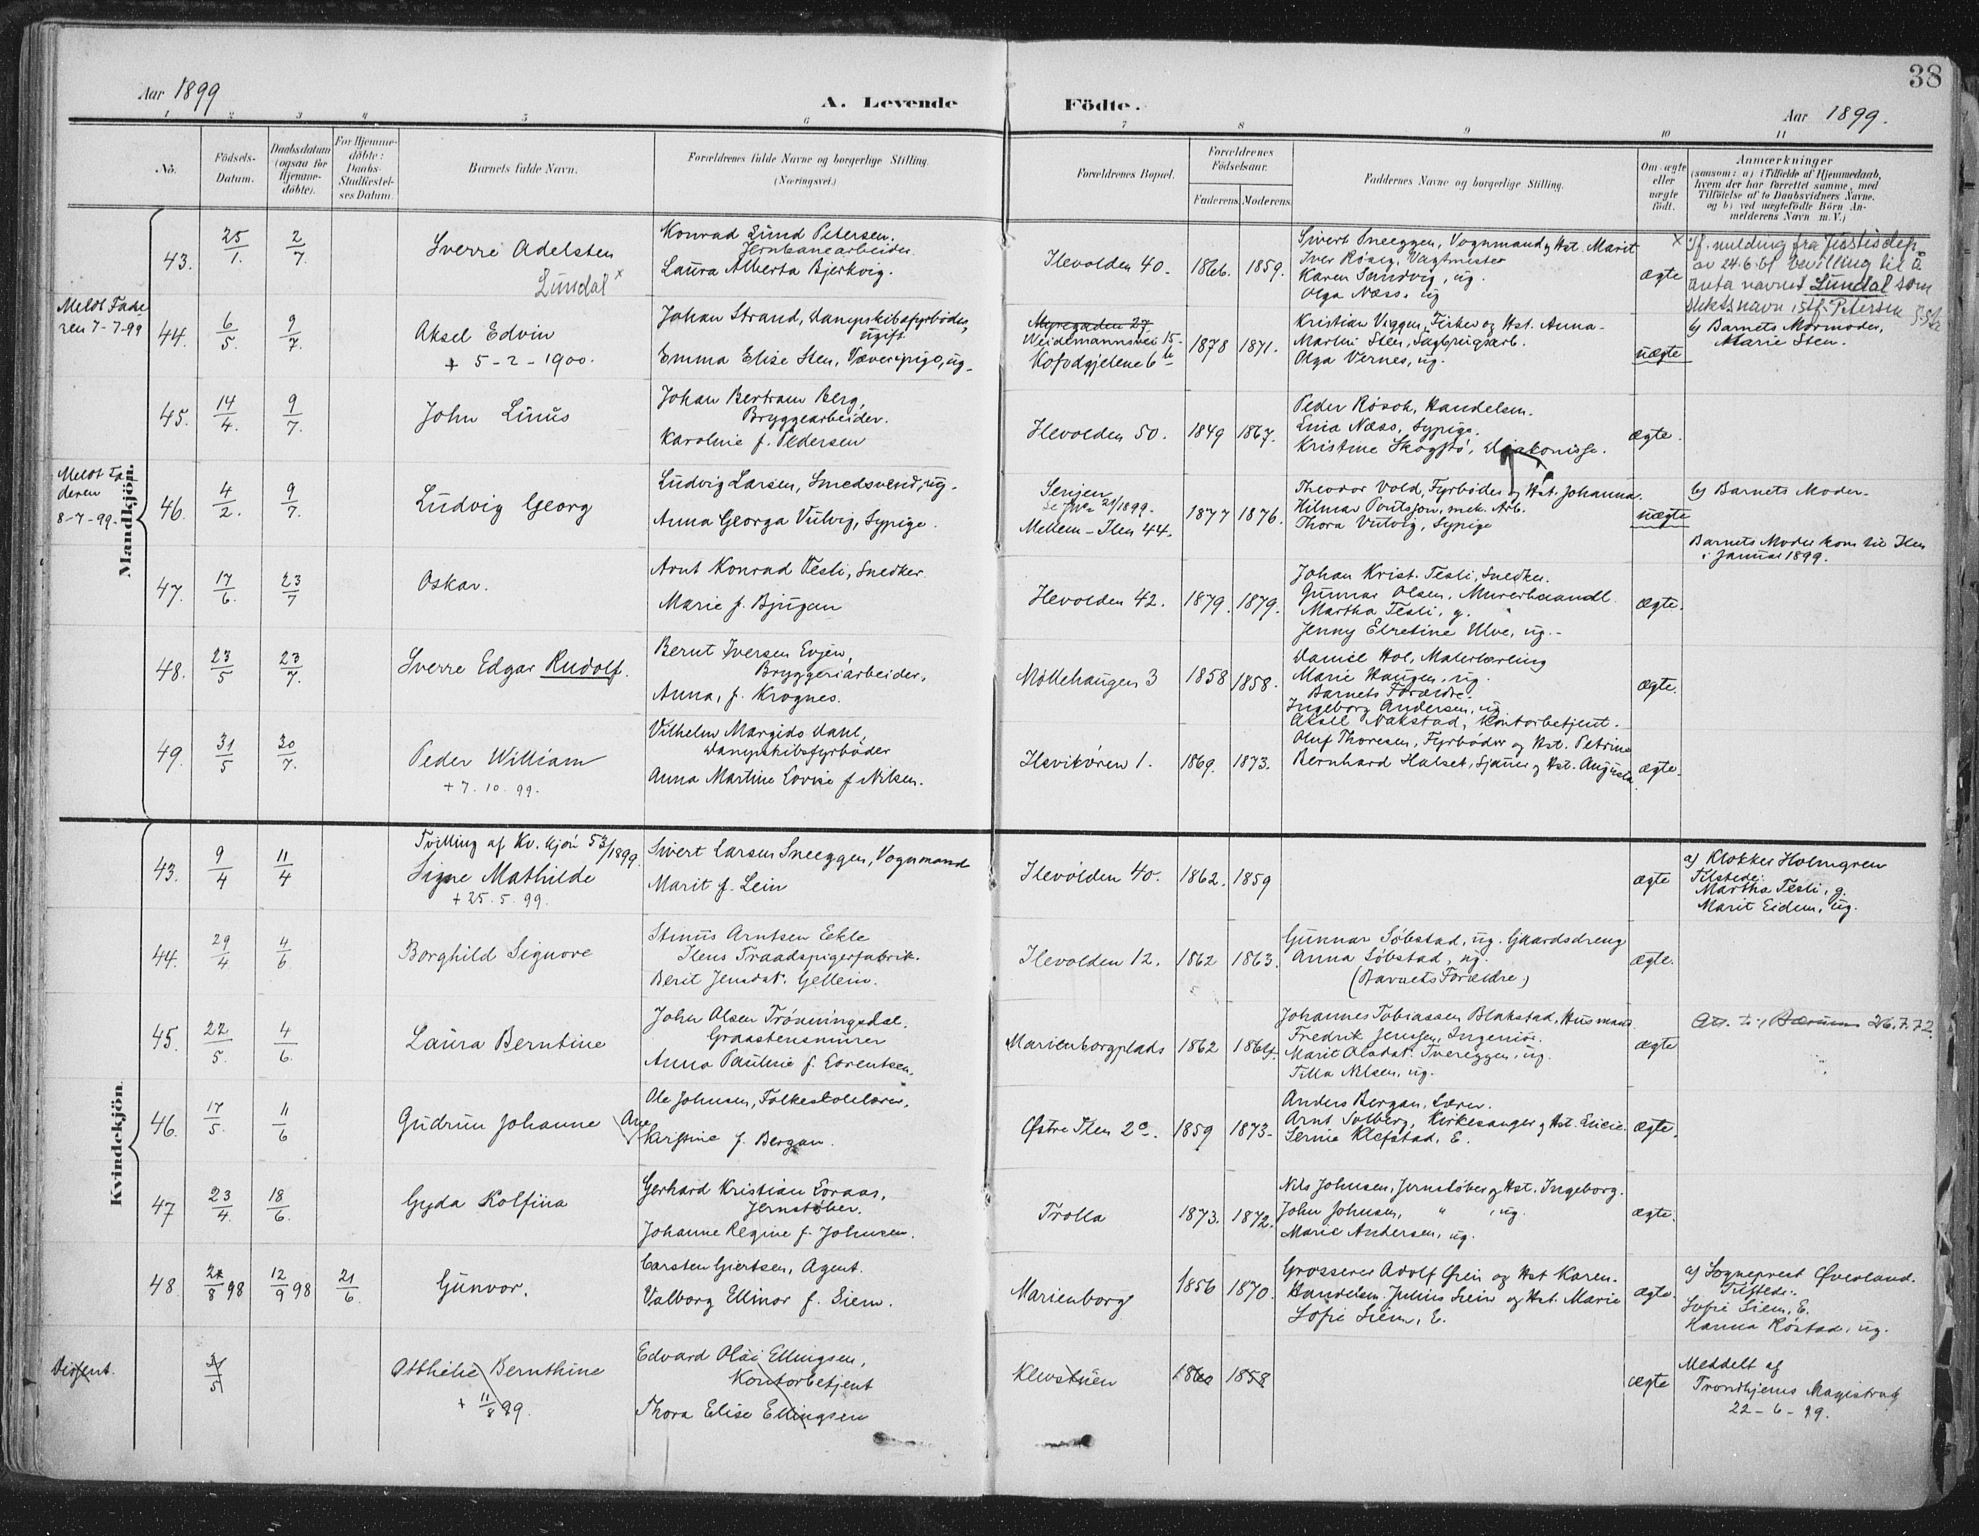 38
Aar 1899
A. Levende Födte.
Aar 1899.
1 2 3 4 5 6 7 8 9 10 11
No.
Födsels-Datum.
Daabsdatum (ogsaa for Hjemme-döbte).
For Hjemme-döbte: Daabs-Stadfæstel-ses Datum.
Barnets fulde Navn.
Forældrenes fulde Navne og borgerlige Stilling.
(Næringsvei.)
Forældrenes Bopæl.
Forældrenes Födselsaar.
Faderens. Moderens.
Faddernes Navne og borgerlige Stilling.
Om ægte eller uægte födt.
Anmærkninger
(saasom: a) i Tilfælde af Hjemmedaab, hvem der har forrettet samme, med Tilföielse af to Daabsvidners Navne, og b) ved uægtefödte Börn An-melderens Navn m. V.)
Mandkjön.
43. 25/1. 2/7. Sverre Adelsten
Lundal x
Konrad Lund Petersen.
Jernbanearbeider.
Laura Alberta Bjerkvig.
Ilevolden 40. 1866. 1859.
Sivert Sneeggen, Vognmand og Hst. Marit
Iver Røseg, Vagtmester
Karen Sandvig, ug.
Olga Næss, ug
ægte
x If. melding fra Justisdep.
av 24.6. bevilling til å
anta navnet Lundal som
slektsnavn istf. Petersen
Meldt Fade
ren 7-7-99
44. 6/5. 9/7. Aksel Edvin
+ 5-2-1900.
Johan Strand, Dampskibsfyrbøder,
ugift
Emma Elise Sten, Væverpige, ug.
Myregaden 27
Weidemannsvei 15
Kofodgjelene 6 b
1878 1871.
Kristian Viggen, Fisker og Hst. Anna.
Martin Sten, Sagbrugsarb.
Olga Vernes, ug.
uægte
b) Barnets Mormoder,
Marie Sten.
45. 14/4. 9/7. John Linus
Johan Bertram Berg,
Bryggearbeider.
Karoline f. Pedersen
Ilevolden 50. 1849 1867.
Peder Røsok, Handelsm.
Lina Næss, Sypige.
Kristine Skogstø, Diakonisse.
ægte.
Meldt Fa
deren
8-7-99.
46. 4/2. 9/7. Ludvig Georg
Ludvig Larsen, Smedsvend, ug.
Anna Georga Vulvig, Sypige.
Senjen
21/1899.
Mellem-Ilen 44.
1877 1876.
Theodor Vold, Fyrbøder og Hst. Johanna.
Hilmar Poulsson, mek. Arb.
Thora Vulvig, Sypige
uægte
b) Barnets Moder.
Barnets Moder kom til Ilen
i Januar 1899.
47. 17/6. 23/7 Oskar.
Arnt Konrad Tesli, Snedker
Marie f. Bjugan
Ilevolden 42. 1879. 1879.
Johan Krist. Tesli, Snedker.
Gunnar Olsen, Murerhaandl.
Martha Tesli, g. "
Jenny Elretine Ulve, ug.
ægte.
48. 23/5 23/7. Sverre Edgar Rudolf.
Bernt Iversen Evjen,
Bryggeriarbeider,
Anna, f. Krognes.
Møllehaugen 3 1858 1858.
Daniel Hol, Malerlærling
Marie Haugen, ug.
Barnets Forældre.
Ingeborg Andersen, ug.
Aksel Nakstad, Kontorbetjent.
ægte.
49. 31/5 30/7. Peder William
+ 7. 10. 99.
Vilhelm Margido Dahl,
Dampskibsfyrbøder
Anna Martine Lovise f. Nilsen.
Ilsvikøren 1. 1869. 1873.
Oluf Thoresen, Fyrbøder og Hst. Petrine
Bernhard Halset, Sjauer og Hst. Augusta.
ægte.
Kvindekjön.
43. 9/4 11/4
Tvilling af Kv. kjøn 53/1899.
Signe Mathilde
+ 25. 5. 99.
Sivert Larsen Sneeggen, Vognmand
Marit f. Lein
Ilevolden 40. 1862. 1859
ægte
a) Klokker Holmgren
Tilstede:
Martha Tesli, g.
Marit Eidem, ug.
44. 29/4 4/6 Borghild Signore
Stinus Arntsen Ekle
Ilens Traadspigerfabrik.
Berit Jensdat. Gellein.
Ilevolden 12. 1862 1863.
Gunnar Søbstad, ug. Gaardsdreng
Anna Søbstad, ug.
(Barnets Forældre)
ægte.
45. 22/5. 4/6. Laura Berntine
John Olsen Trønningsdal.
Graastensmurer
Anna Pauline f. Lorentsen.
Marienborgplads 1862 1864.
Johannes Tobiassen Blakstad, Husmand.
Fredrik Jenssen, Ingeniør.
Marit Olsdat. Tvereggen, ug.
Tilla Nilsen, ug.
ægte
Att. t. Bærum 26.7.72
46. 17/5. 11/6 Gudrun Johanne Are
Ole Johnsen, Folkeskolelærer,
Kristine f. Bergan.
Østre Ilen 2c. 1859 1873.
Anders Bergan, Lærer.
Arnt Solberg, Kirkesanger og Hst. Lucie.
Serine Klefstad, E.
ægte.
47 23/4. 18/6. Gyda Kolfina
Gerhard Kristian Loraas,
Jernstøber.
Johanne Regine f. Johnsen.
Trolla 1873. 1872.
Nils Johnsen, Jernstøber og Hst. Ingeborg.
John Johnsen, " , ug.
Marie Andersen, ug.
ægte.
48. 2/8 98 12/9 98 21/6. Gunvor.
Carsten Giertsen, Agent.
Valborg Ellinor f. Siem.
Marienborg 1856 1870.
Grosserer Adolf Øien og Hst Karen.
Handelsm. Julius Siem og Hst. Marie
Sofie Siem, E.
ægte.
a) Sogneprest Øverland.
Tilstede:
Sofie Siem, E.
Hanna Røstad, ug.
Disent.
31/5
Otthilie Bernthine
+ 11/8 99.
Edvard Olai Ellingsen,
Kontorbetjent
Thora Elise Ellingsen
Klevstuen 1860 1858
ægte
Meddelt af
Trondhjems Magistrat
22-6-99.